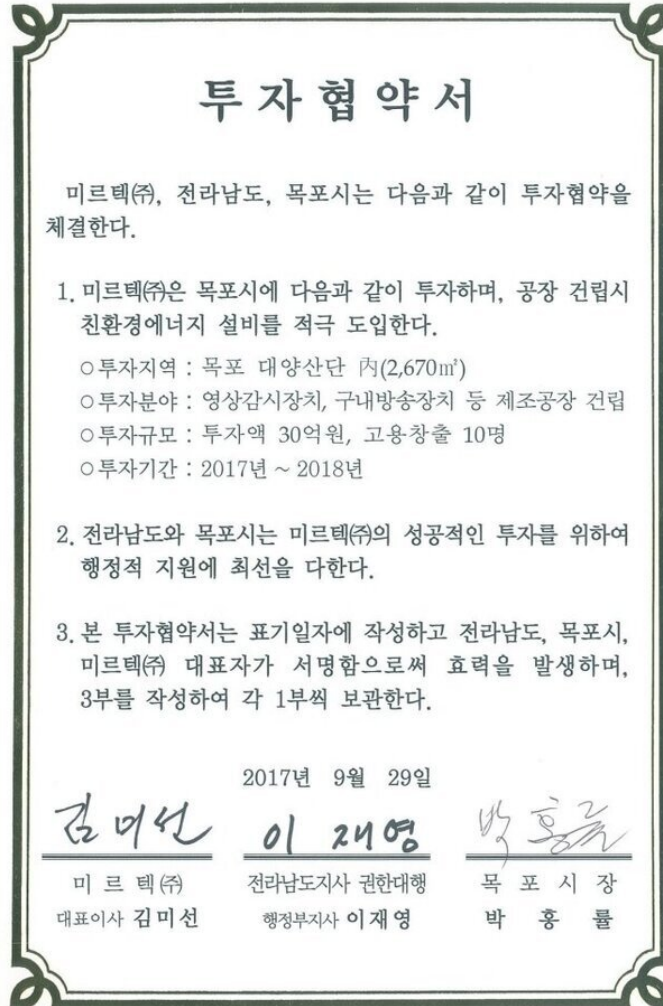 투자협약서
미르텍㈜, 전라남도, 목포시는 다음과 같이 투자협약을
체결한다.
1. 미르텍㈜은 목포시에 다음과 같이 투자하며, 공장 건립시
친환경에너지 설비를 적극 도입한다.
○투자지역 : 목포 대양산단 內(2,670㎡)
○투자분야 : 영상감시장치, 구내방송장치 등 제조공장 건립
○투자규모 : 투자액 30억원, 고용창출 10명
○투자기간 : 2017년 ~ 2018년
2. 전라남도와 목포시는 미르텍㈜의 성공적인 투자를 위하여
행정적 지원에 최선을 다한다.
3. 본 투자협약서는 표기일자에 작성하고 전라남도, 목포시,
미르텍㈜ 대표자가 서명함으로써 효력을 발생하며,
3부를 작성하여 각 1부씩 보관한다.
2017년 9월 29일
김미선 이재영 박홍률
미르텍㈜ 전라남도지사 권한대행 목포시장
대표이사 김미선 행정부지사 이재영 박홍률